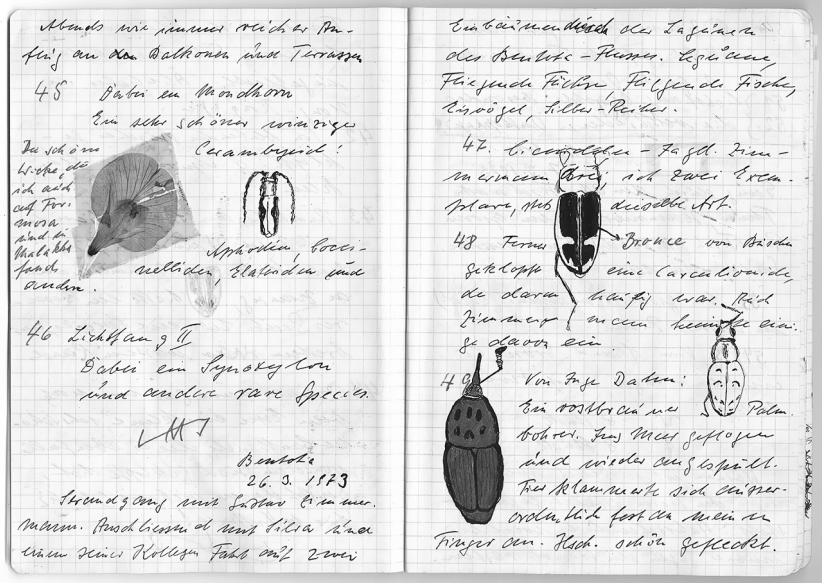 Abends wie immer reicher An-
flug an den Balkonen und Terrassen
45 Dabei ein Mondhorn
Ein sehr schöner winziger
Cerambycid!
Die schöne
Wicke, die
ich auch
auf For-
mosa
und in
Malakka
fand
Aphodien, Cocci-
nelliden, Elateriden und
andere.
46 Lichtfang II
Dabei ein Synoxylon
und andere rare Species.
Bentota
26. 3. 1973
Strandgang mit Gustav Zimmer-
mann. Anschliessend mit Silva und
einem seiner Kollegen Fahrt auf zwei
Einbäumen durch der Lagunen
des Bentota-Flusses. Leguane,
Fliegende Füchse, Fliegende Fische,
Eisvögel, Silber-Reiher.
47. Cicindelen-Jagd. Zim-
mermann drei, ich zwei Exem-
plare, stets dieselbe Art.
48 Ferner Bronce von Büschen
geklopft eine Curculionide,
die daran häufig war. Auch
Zimmermann heimste eini-
ge davon ein.
49 Von Inge Dahm:
Ein rostbrauner Palm-
bohrer. Ins Meer geflogen
und wieder angespült.
Tier klammerte sich ausser-
ordentlich fest an meinen
Finger an. Hsch. schön gefleckt.